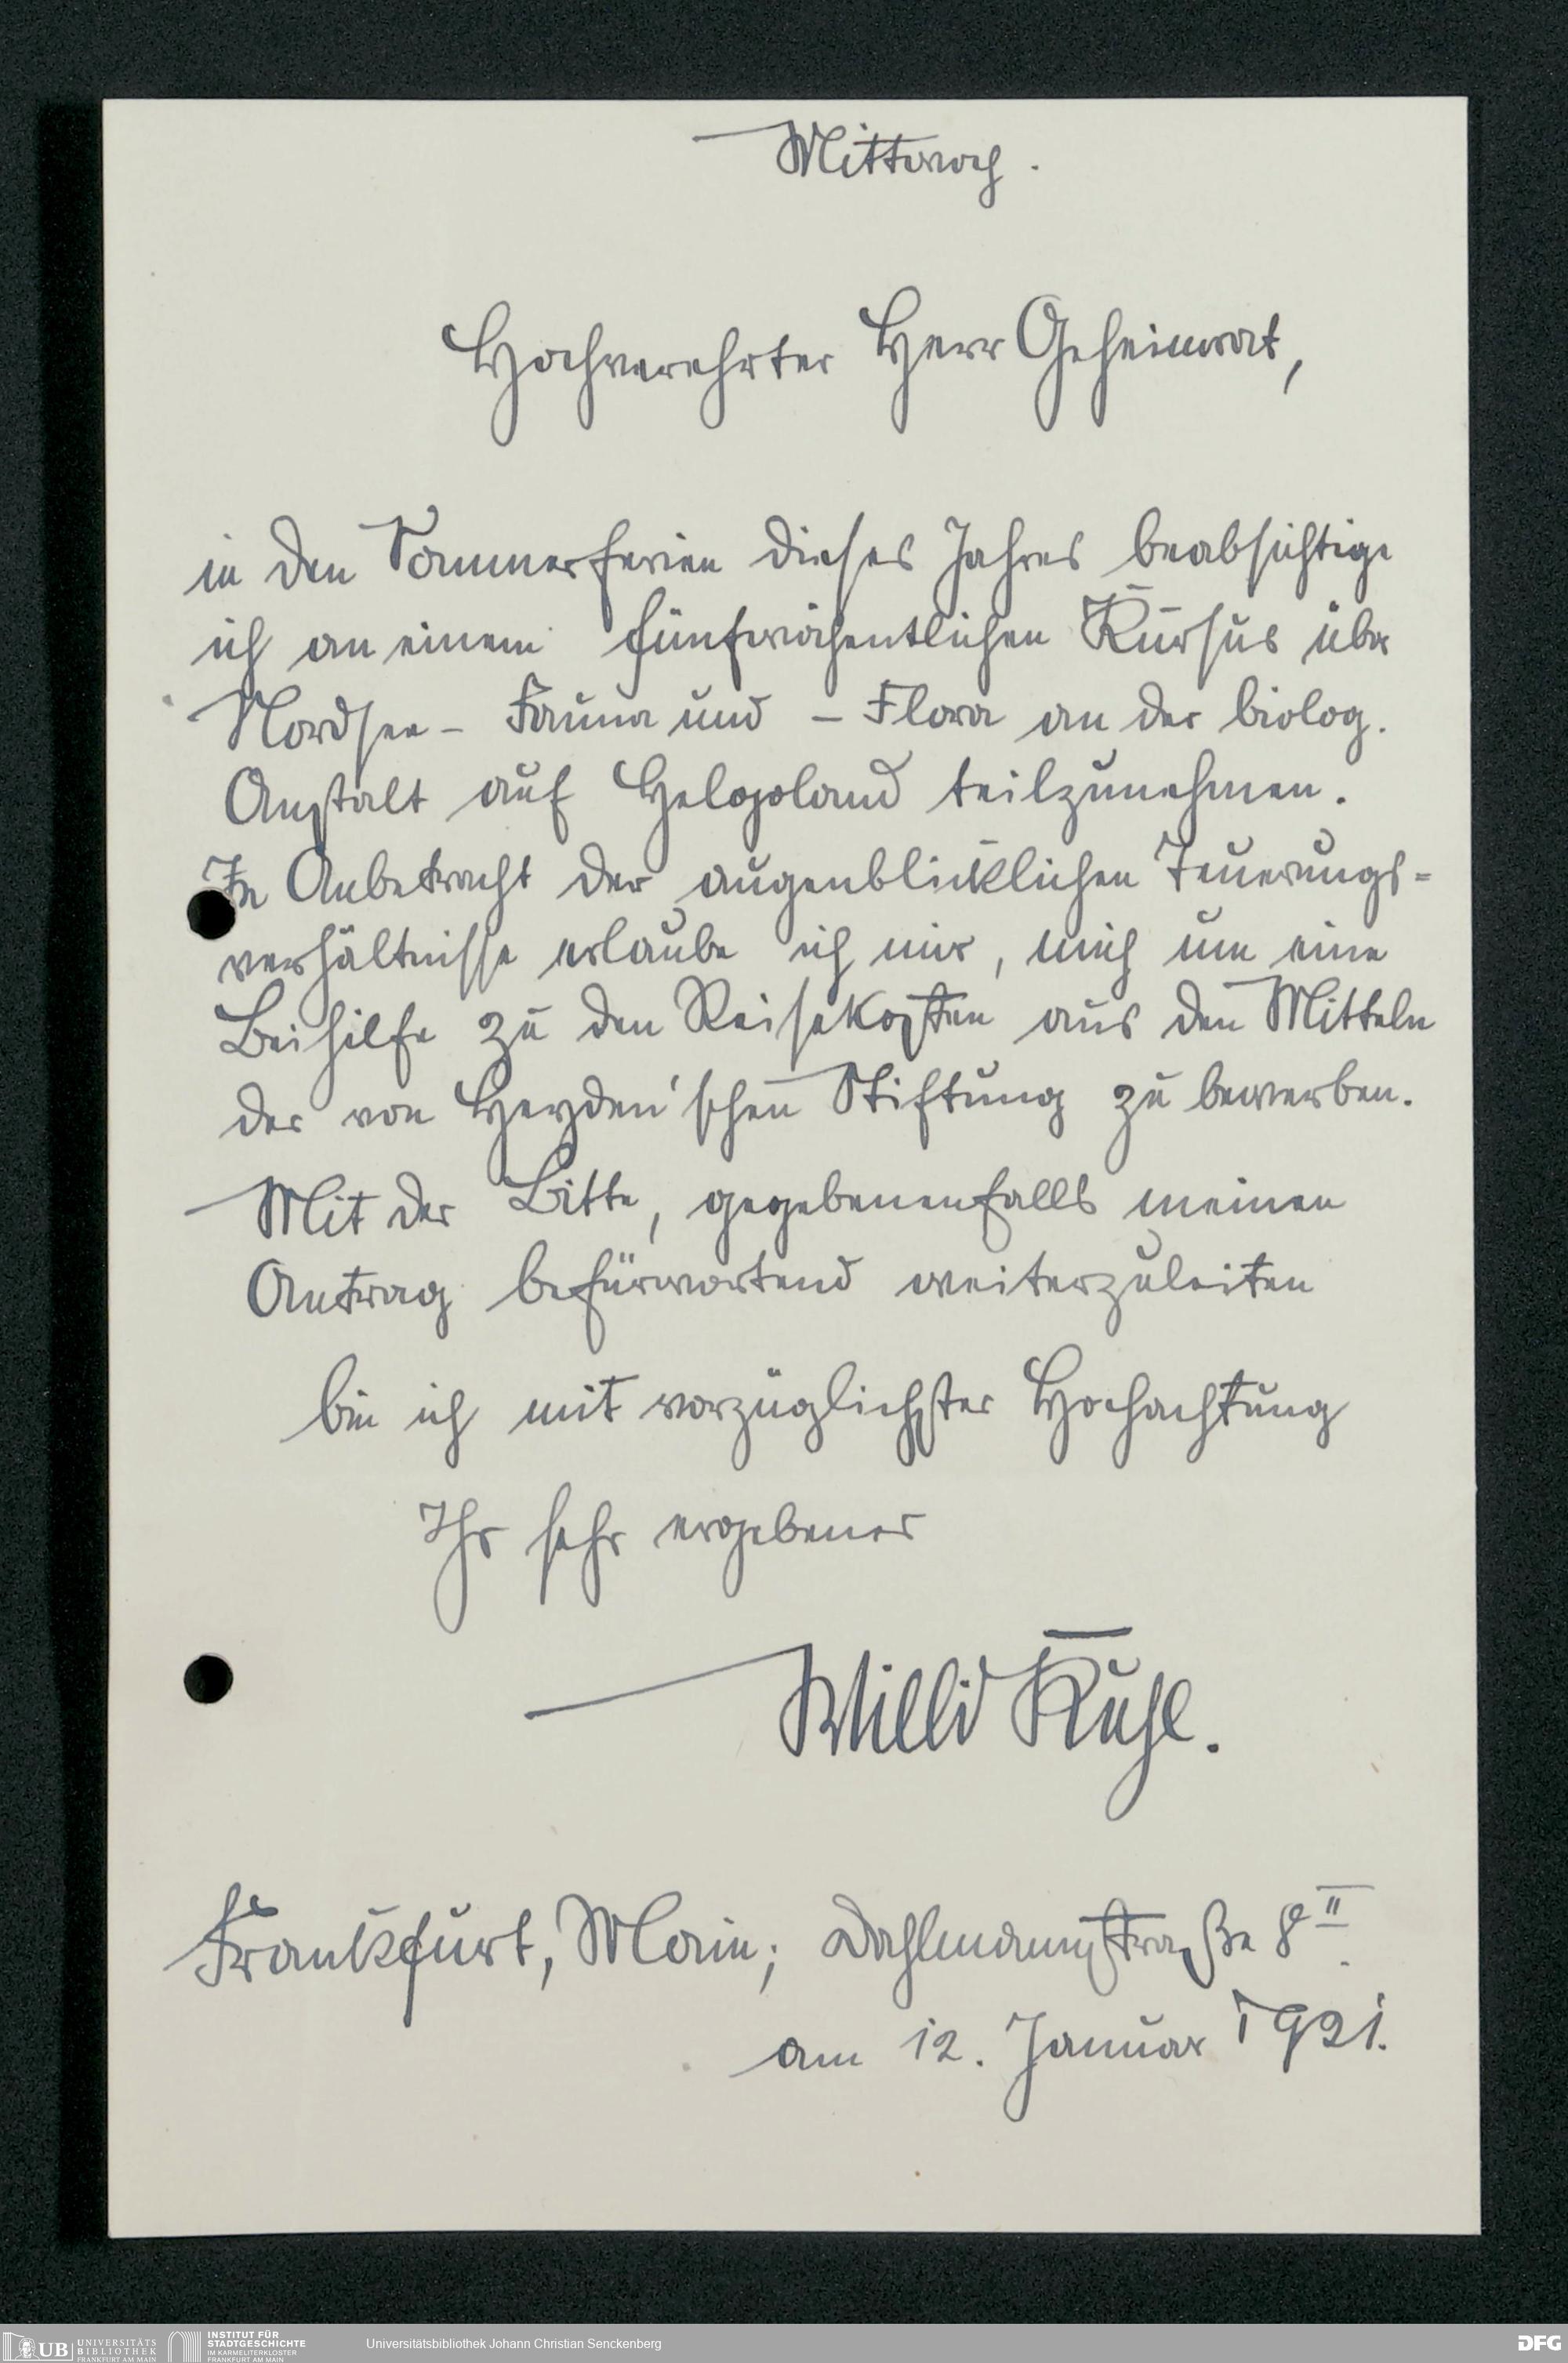 Mittwoch.
Hochverehrter Herr Geheimrat,
in den Sommerferien dieses Jahres beabsichtige
ich an einem fünfwöchentlichen Kursus über
Nordsee- Fauna und -Flora an der biolog.
Anstalt auf Helgoland teilzunehmen.
In Anbetracht der augenblicklichen Teuerungs-
verhältnisse erlaube ich mir, mich um eine
Beihilfe zu den Reisekosten aus den Mitteln
der von Heyden'schen Stiftung zu bewerben.
Mit der Bitte, gegebenenfalls meinen
Antrag befürwortend weiterzuleiten
bin ich mit vorzüglichster Hochachtung
Ihr sehr ergebener
Willi Kuhl.
Frankfurt, Main; Dahlmannstraße 8 II.
am 12. Januar 1921.
UB UNIVERSITÄTS BIBLIOTHEK FRANKFURT AM MAIN
INSTITUT FÜR STADTGESCHICHTE IM KARMELITERKLOSTER FRANKFURT AM MAIN
Universitätsbibliothek Johann Christian Senckenberg
DFG